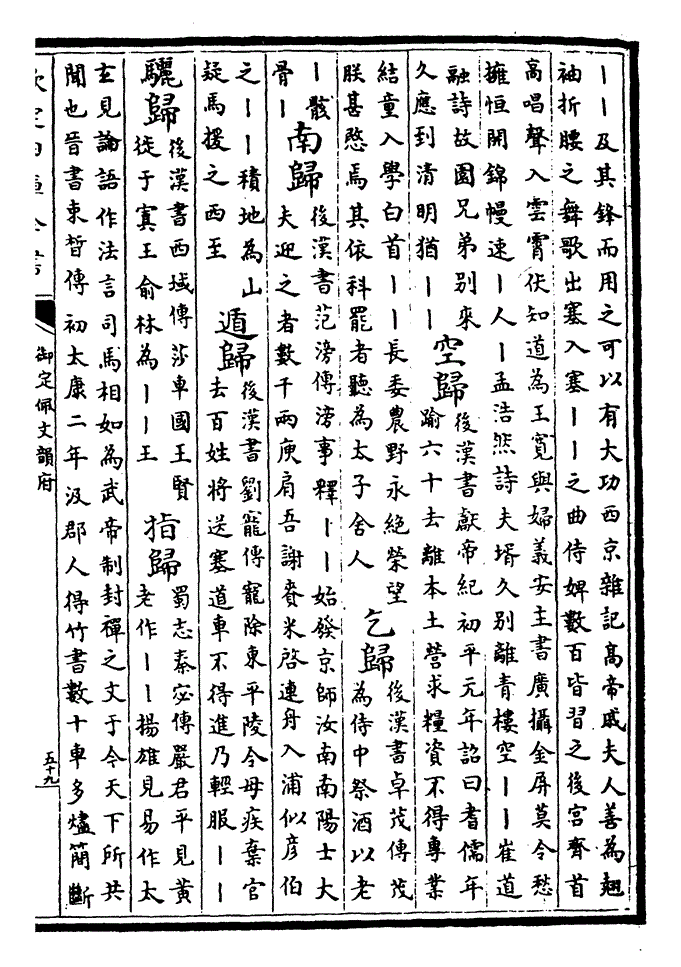 ｜｜及其鋒而用之可以有大功西京雜記髙帝戚夫人善為翹
袖折腰之舞歌出塞入塞｜｜之曲侍婢數百皆習之後宮齊首
高唱聲入雲霄伏知道為王寛與婦義安主書廣攝金屏莫令愁
擁恒開錦幔速｜人｜孟浩然詩夫壻久別離青樓空｜｜崔道
融詩故園兄弟別來
久應到清明猶｜｜
空歸
後漢書獻帝紀初平元年詔曰耆儒年
踰六十去離本土營求糧資不得專業
結童入學白首｜｜長委農野永絶榮望
朕甚愍焉其依科罷者聽為太子舍人
乞歸
後漢書卓茂傳茂
為侍中祭酒以老
｜骸
骨｜
南歸
後漢書范滂傳滂事釋｜｜始發京師汝南南陽士大
夫迎之者數千兩庾肩吾謝賚米啓連舟入浦似彦伯
之｜｜積地為山
疑馬援之西至
遁歸
後漢書劉寵傳寵除東平陵令母疾棄官
去百姓將送塞道車不得進乃輕服｜｜
驪歸
後漢書西域傳莎車國王賢
徙于寘王俞林為｜｜王
指歸
蜀志秦宓傳嚴君平見黃
老作｜｜揚雄見易作太
玄見論語作法言司馬相如為武帝制封禪之文于今天下所共
聞也晉書束晳傳初太康二年汲郡人得竹書數十車多燼簡斷
欽定四庫全書
御定佩文韻府
五十九